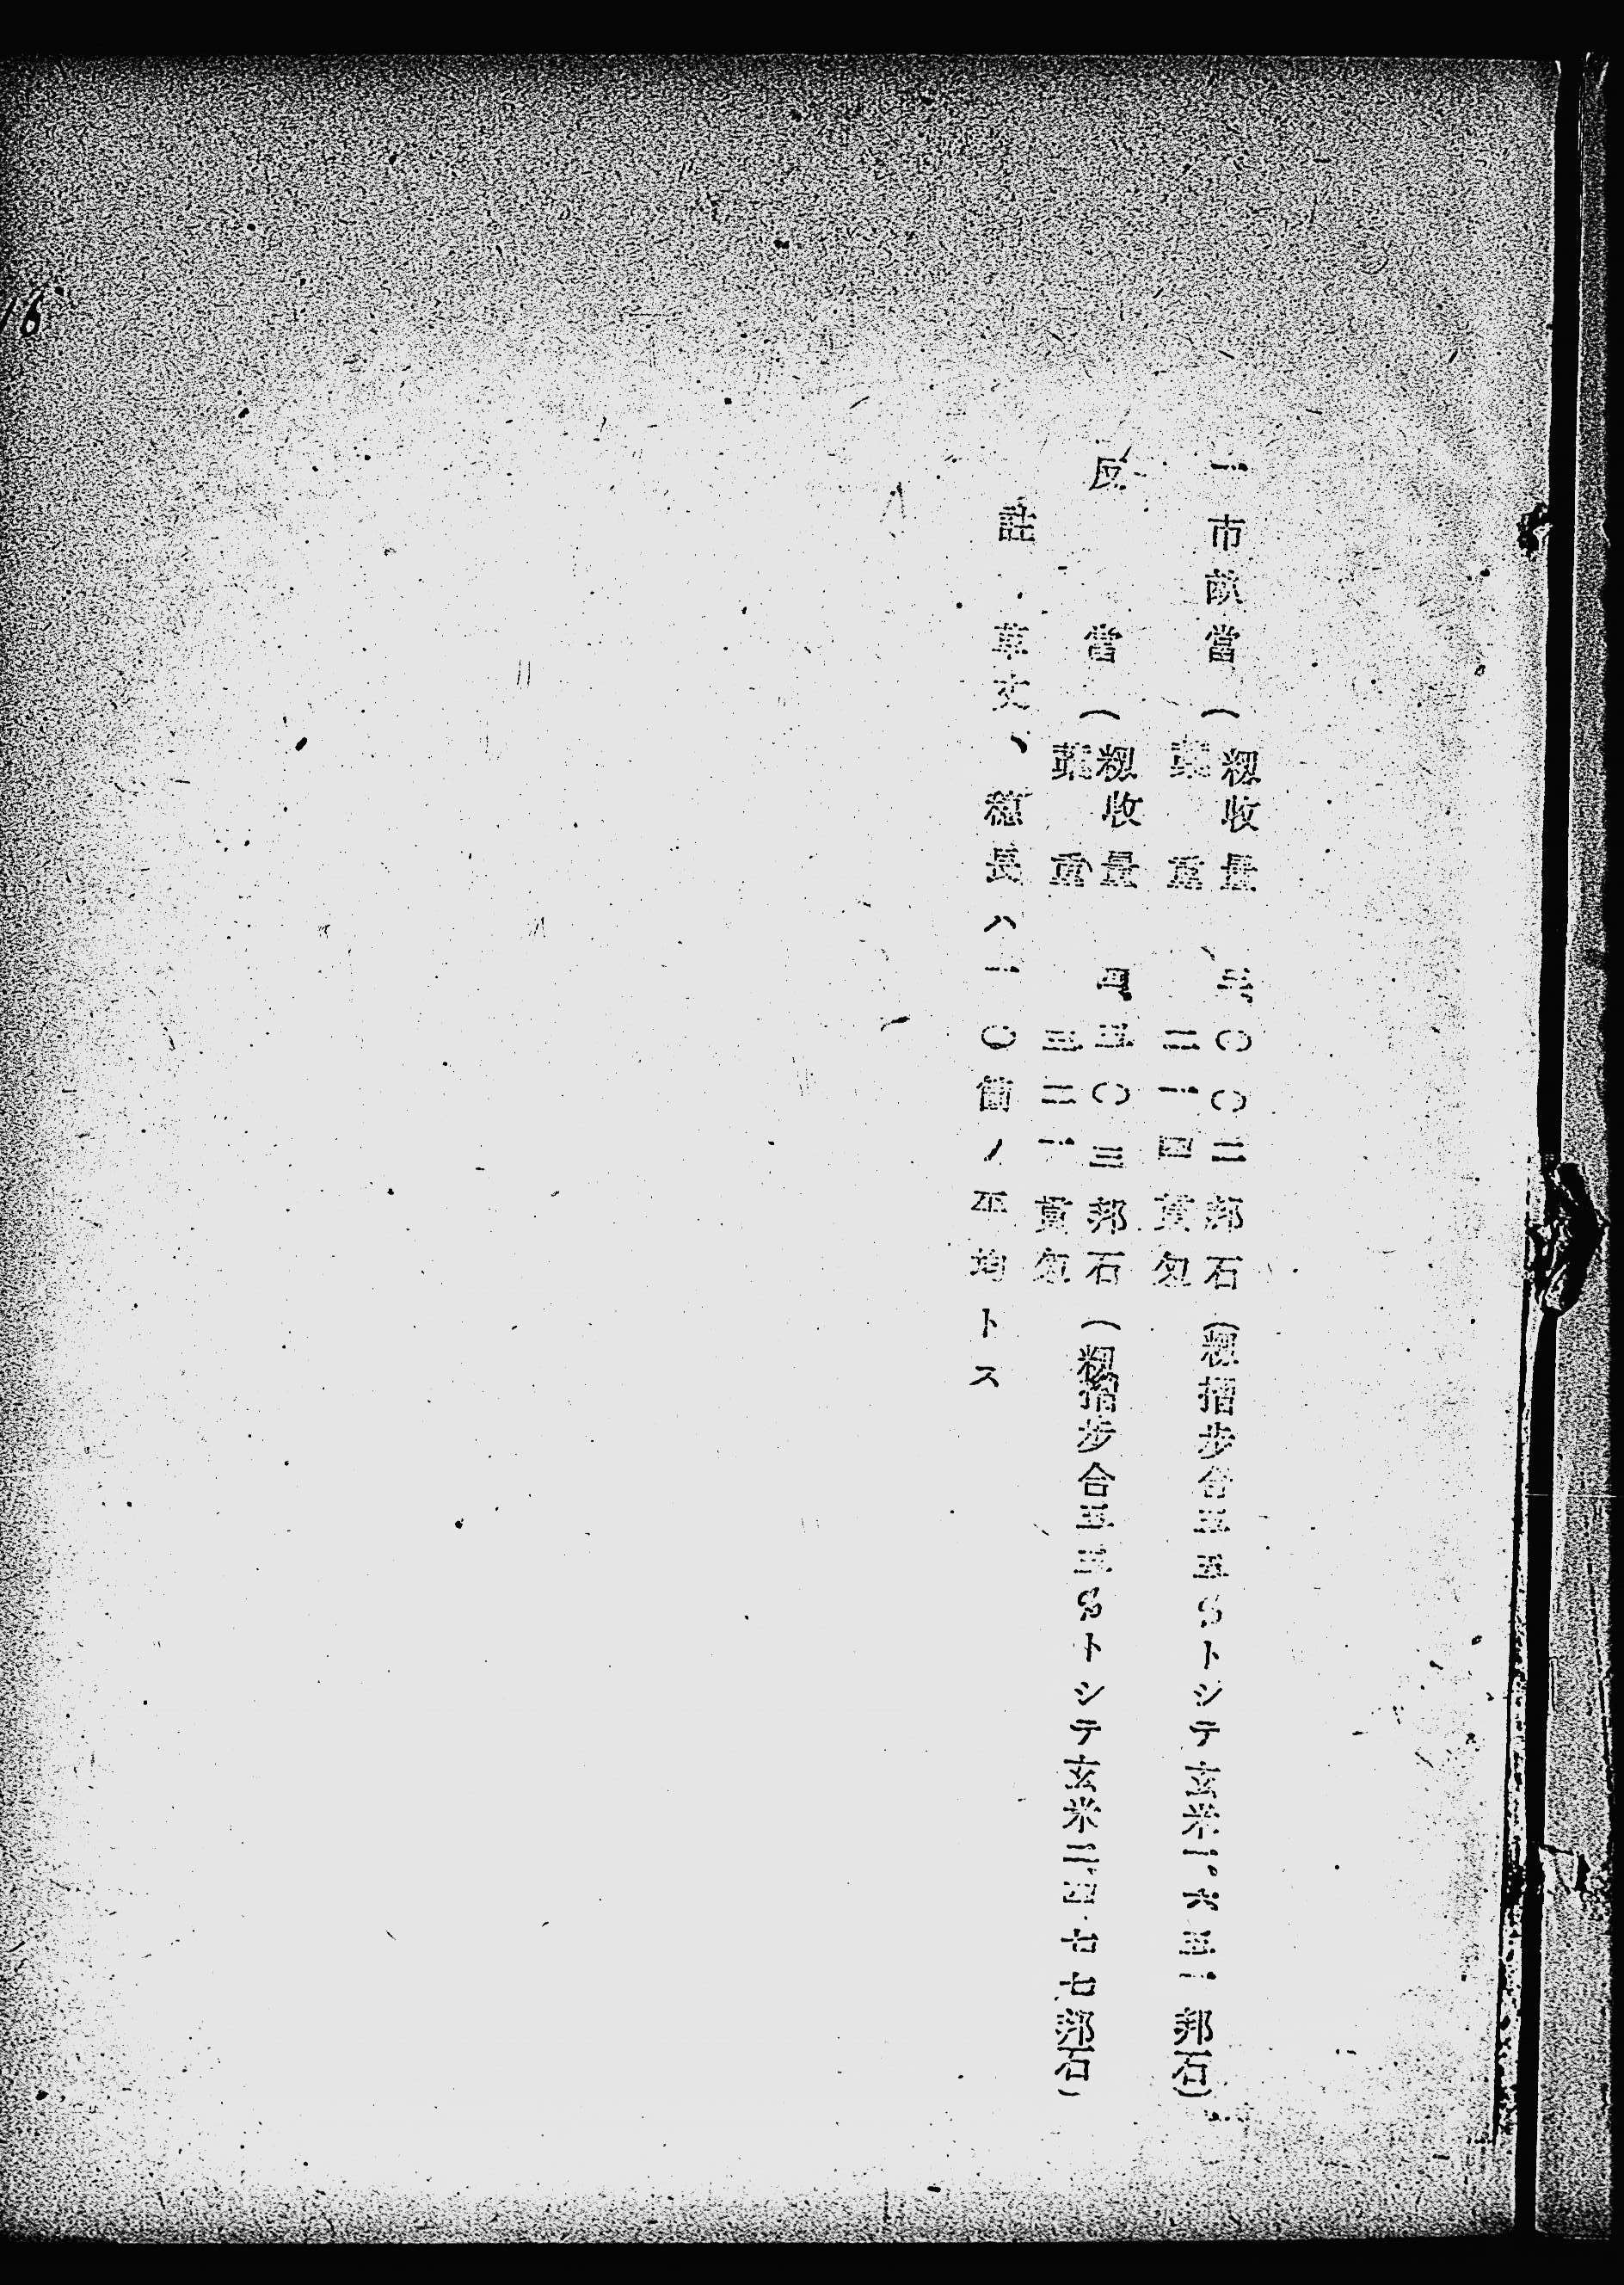 一市畝當(籾收量 三、〇〇二邦石(籾摺步合五五%トシテ玄米一、六五一邦石)
藁重 二一四貫匁
反當(籾收量 四、五〇三邦石(籾摺步合五五%トシテ玄米二、四七七邦石)
藁重 三二一貫匁
註 草丈、穗長ハ一〇箇ノ平均トス
16